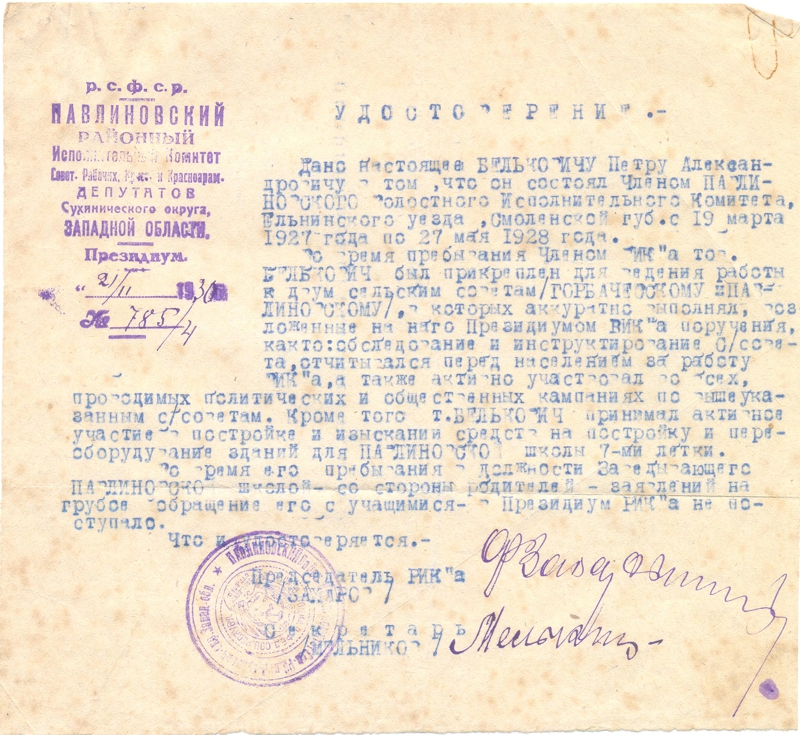 Р.С.Ф.С.Р.
ПАВЛИНОВСКИЙ
РАЙОННЫЙ
Исполнительный Комитет
Совет. Рабочих, Крест. и Красноарм.
ДЕПУТАТОВ
Сухинического округа,
ЗАПАДНОЙ ОБЛАСТИ.
Президиум.
"21/II 1930
№ 785/4
УДОСТОВЕРЕНИЕ.-
Дано настоящее БЕЛЬКОВИЧУ Петру Алексан-
дровичу в том ,что он состоял Членом ПАВЛИ-
НОВСКОГО волостного Исполнительного Комитета,
Ельнинского уезда ,Смоленской губ.с 19 марта
1927 года по 27 мая 1928 года.
Во время пребывания Членом ВИК"а тов.
БЕЛЬКОВИЧ был прикреплен для ведения работы
к двум сельским советам/ГОРБАЧЕВСКОМУ и ПАВ-
ЛИНОВСКОМУ/,в которых аккуратно выполнял, воз
ложенные на него Президиумом ВИК"а поручения,
както:обследование и инструктирование С/сове-
та,отчитывался перед населением за работу
ВИК"а,а также активно участвовал во всех,
проводимых политических и общественных кампаниях по вышеука-
занным с/советам. Кроме того т.БЕЛЬКОВИЧ принимал активное
участие в постройке и изыскании средств на постройку и пере-
оборудувание зданий для ПАВЛИНОВСКОЙ школы 7-ми летки.
Во время его пребывания в должности Заведывающего
ПАВЛИНОВСКОЙ школой-со стороны родителей - заявлений на
грубое обращение его с учащимися-в Президиум РИК"а не по-
ступало.
Что и удостоверяется.-
Председатель РИК"а
/ЗАХАРОВ/
Секретарь
/МЕЛЬНИКОВ/